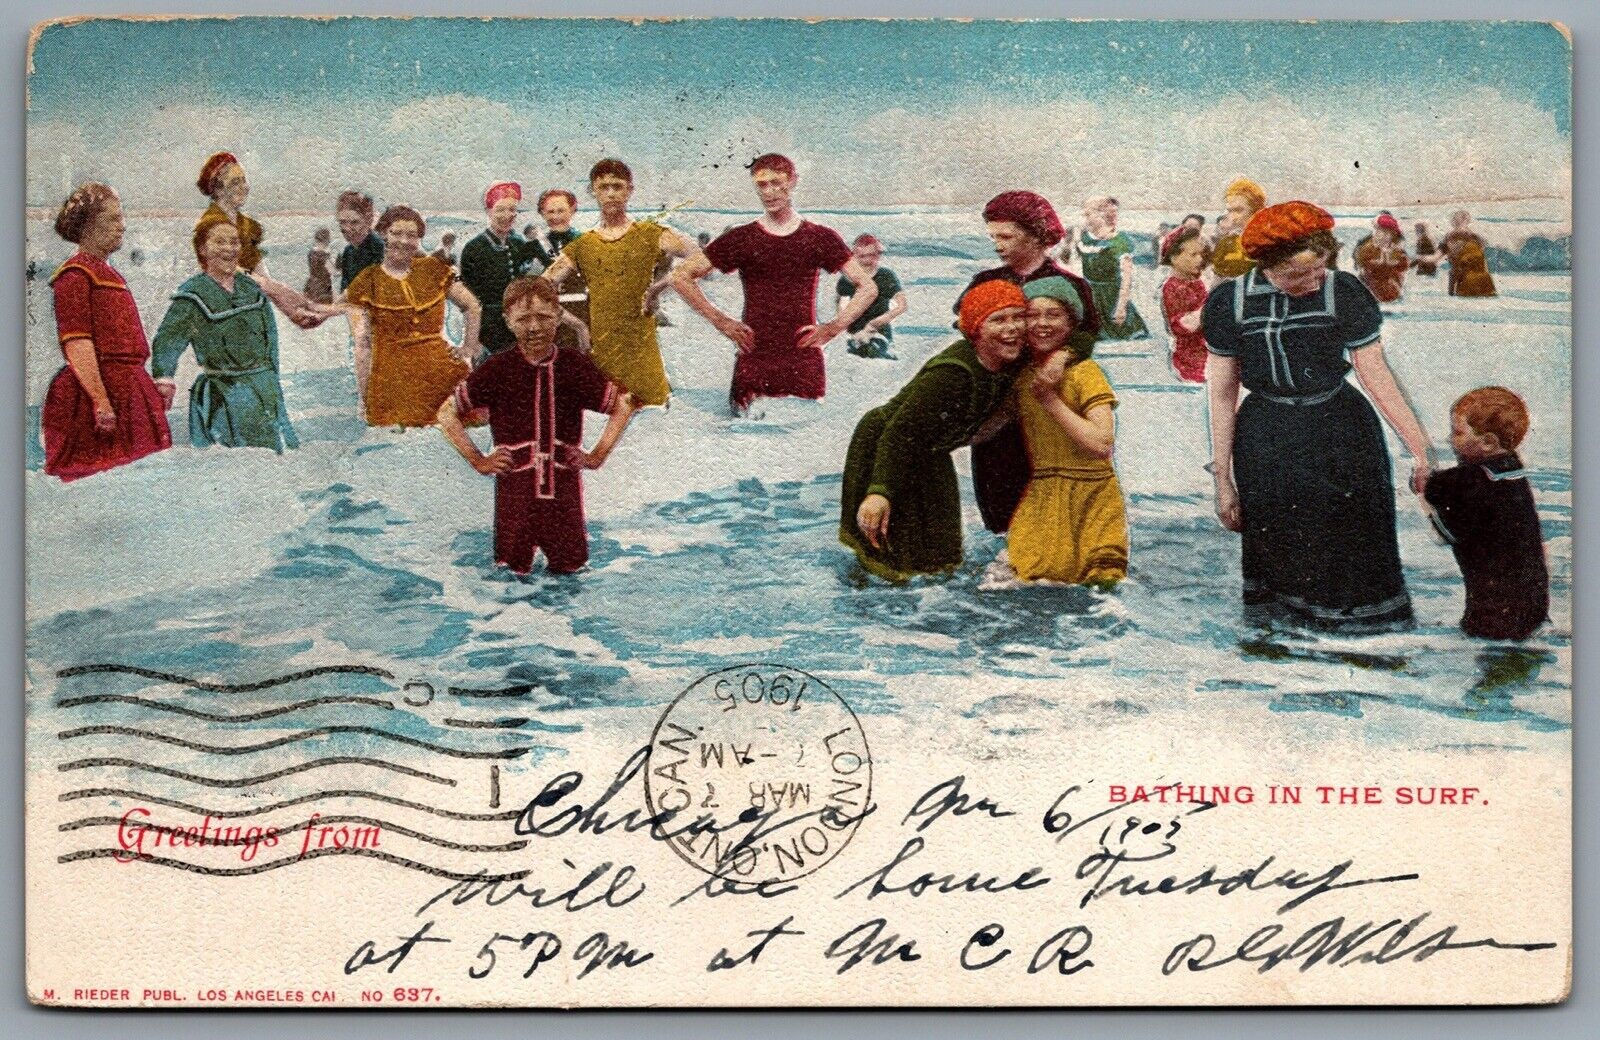 BATHING IN THE SURF.
Greetings from
LONDON, ONT. CAN.
MAR 7
7 - AM
1905
C
I
Chicago Mr 6/1905
will be home Tuesday
at 5 PM at M C R
M. RIEDER PUBL. LOS ANGELES CAL NO 637.